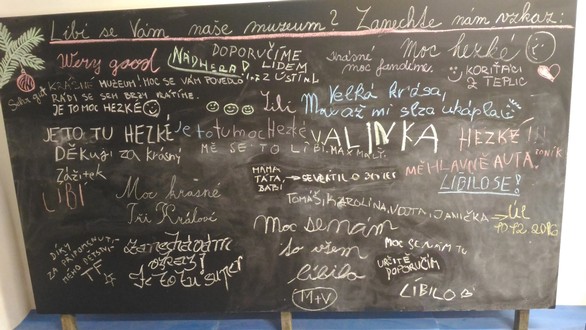 Líbí se Vám naše muzeum? Zanechte nám vzkaz:
Wery good
NÁDHERA
DOPORUČÍME
LIDEM
Z ÚSTÍ N.L
krásné
moc fandíme.
Moc hezké
KORIŤÁCI
Z TEPLIC
Super
KRÁSNÉ MUZEUM! MOC SE VÁM POVEDLO
RÁDI SE SEM BRZY VRÁTÍME.
JE TO MOC HEZKÉ
Líbí
Velká krása,
Mně až mi slza ukápla
JE TO TU HEZKÉ
Je to tu moc Hezké
VALINKA
HEZKÉ!!!
MĚ SE TO LÍBÍ. MAX MALÝ.
DĚKUJI za krásný
Zážitek
MĚ HLAVNĚ AUTA. TONÍK
LÍBILO SE!
LÍBÍ
MAMA
TÁTA
BÁBI
Moc krásné
Tři Králové
TOMÁŠ, KAROLÍNA, VOJTA, JANIČKA → ÚL
10.12.2016
Moc se nám
to všem
líbilo
M+V
DÍKY
ZA PŘIPOMENUT.
MÉHO DĚTSTVÍ
TF
Je to tu super
Moc se nám tu
URČITĚ
DOPORUČÍM
LÍBILO